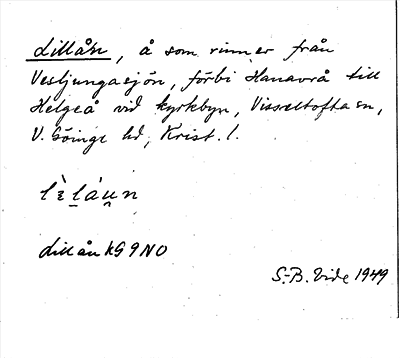 Lillån, å som rinner från
Vesljungasjön, förbi Hanavrå till
Helgeå vid kyrkbyn, Visseltofta sn,
V. Göinge hd, Krist. l.
lὲláu̯n
Lillån KG 9 NO
S.-B. Vide 1949